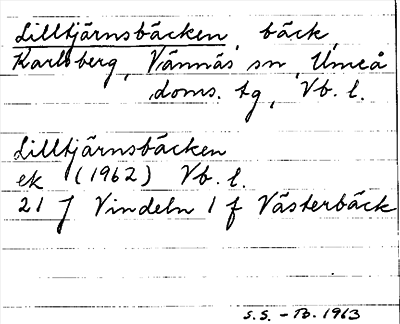 Lilltjärnsbäcken, bäck,
Karlsberg, Vännäs sn, Umeå
doms. tg, Vb. l.
Lilltjärnsbäcken
ek (1962) Vb. l.
21 J Vindeln 1 f Västerbäck
S.S. - Tb. 1963